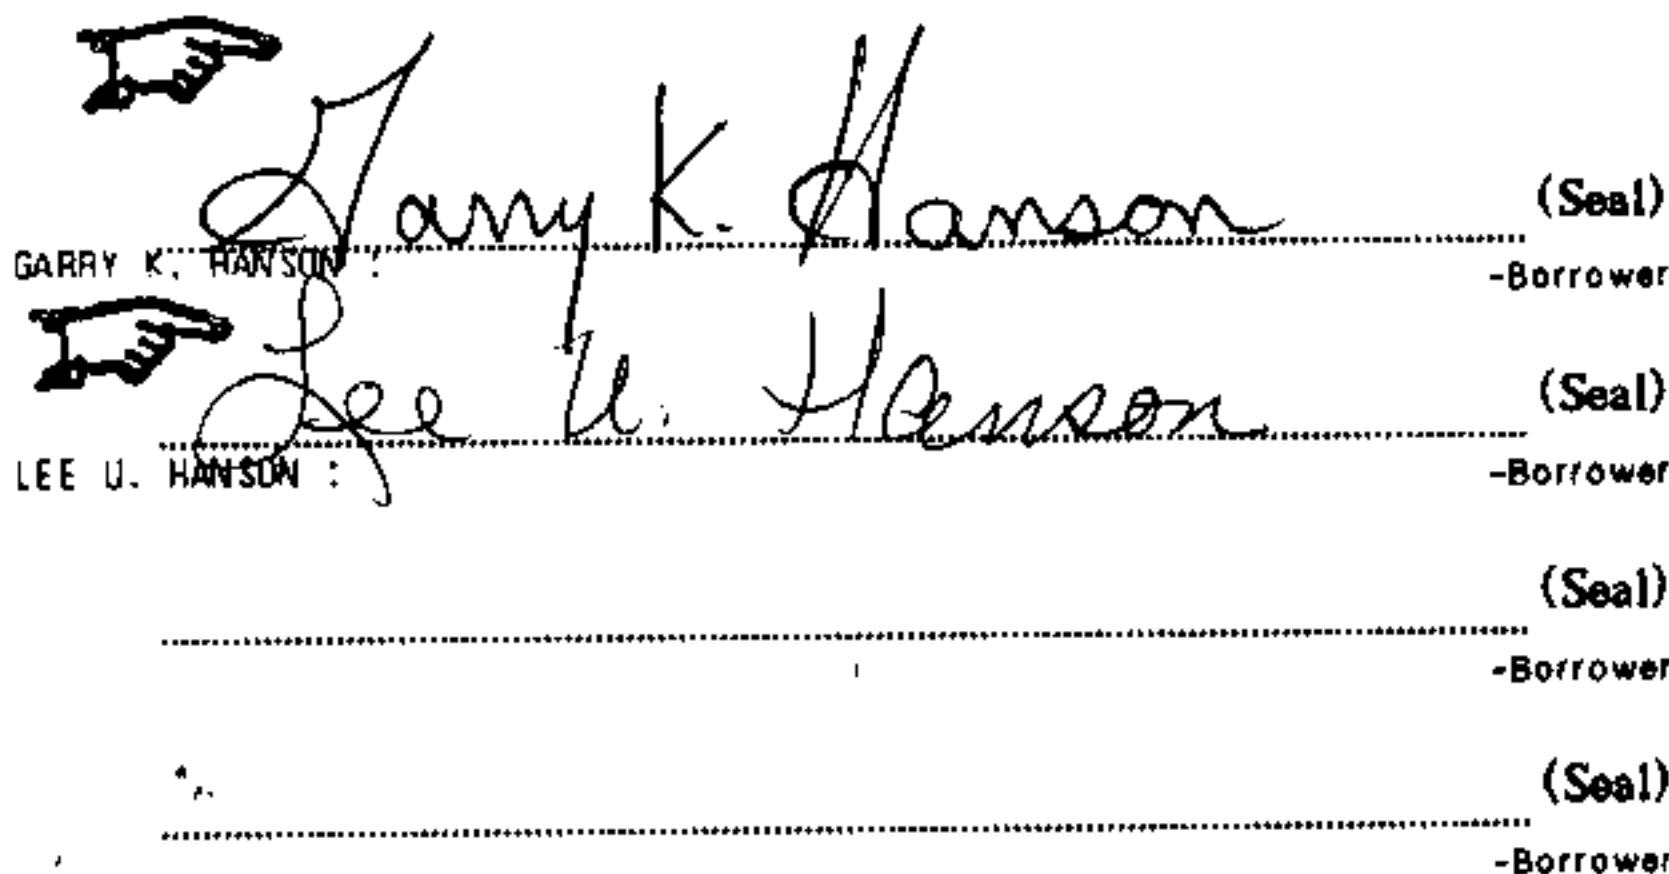 Garry K. Hanson (Seal)
GARRY K. HANSON : -Borrower
Lee U. Hanson (Seal)
LEE U. HANSON : -Borrower
(Seal)
-Borrower
(Seal)
-Borrower